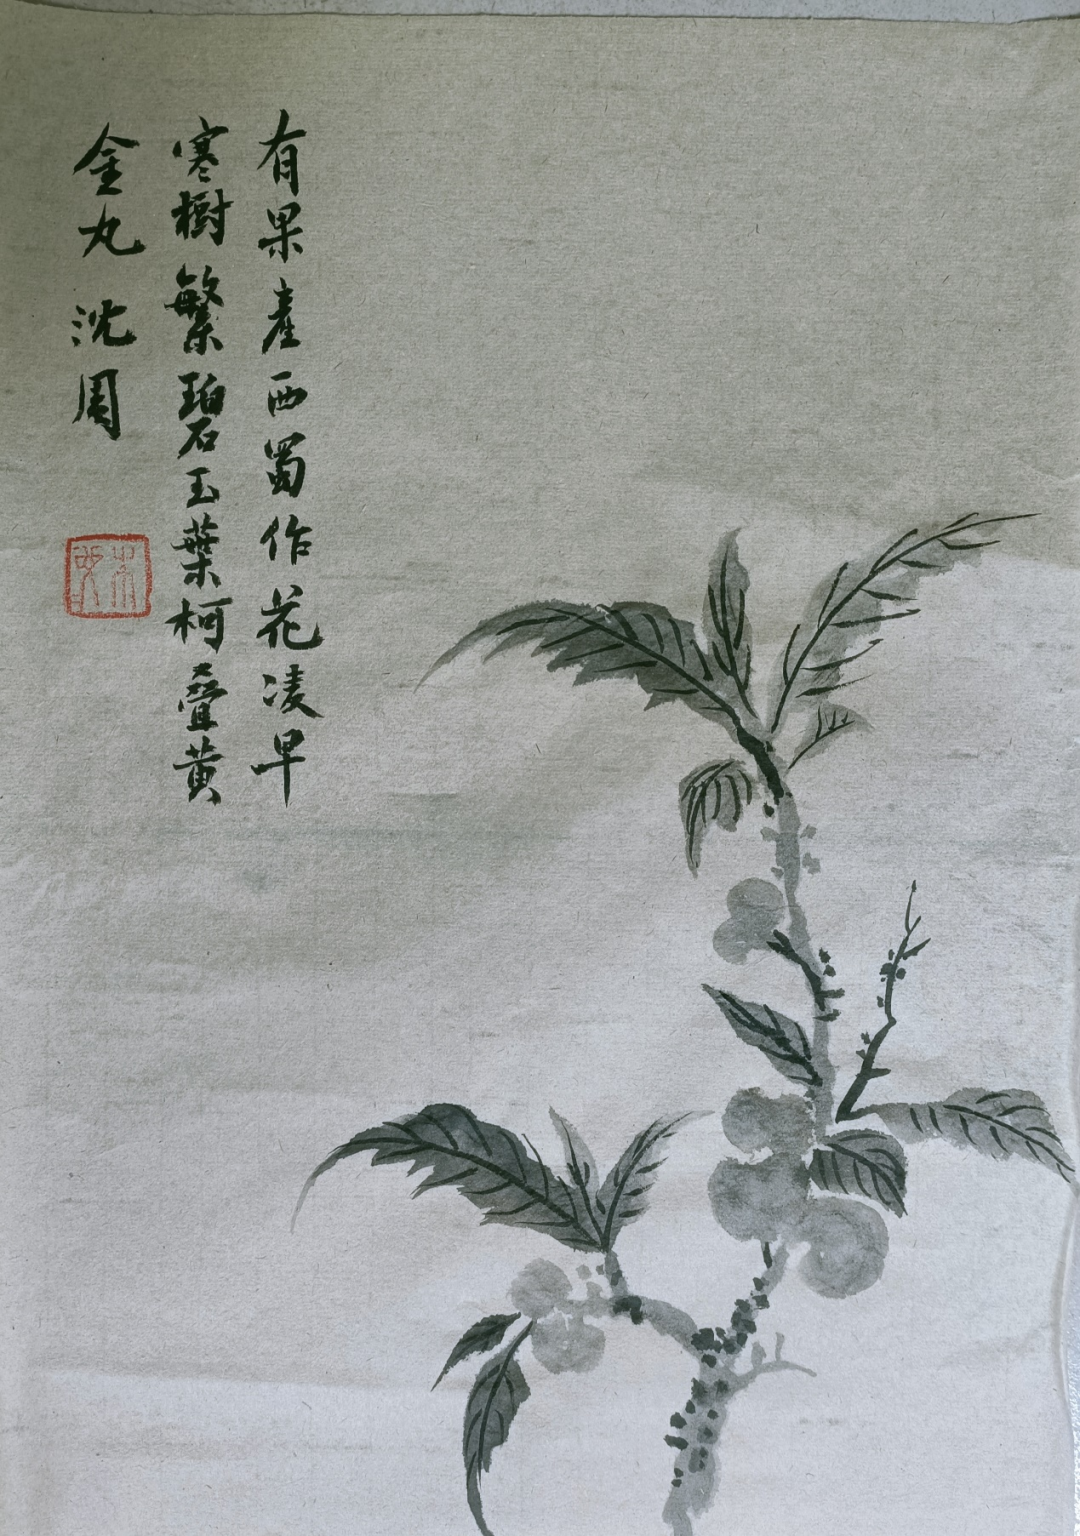 有果產西蜀作花凌早
寒樹繁碧玉葉柯疊黃
金丸 沈周